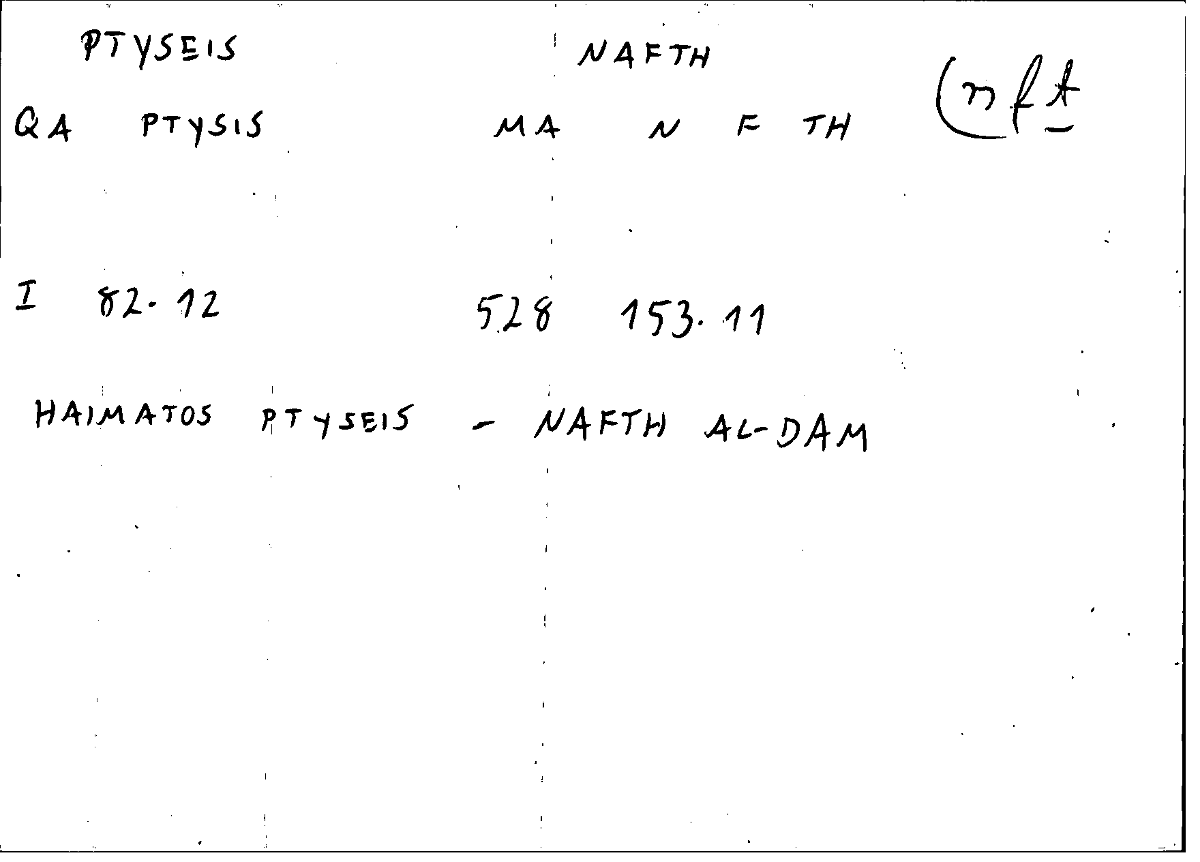 PTYSEIS NAFTH
QA PTYSIS MA N F TH (nft
I 82.12 528 153.11
HAIMATOS PTYSEIS - NAFTH AL-DAM